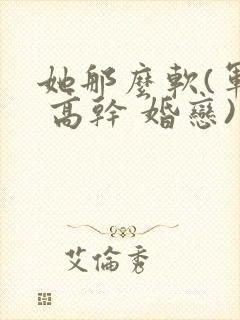 她那麼軟(軍
高幹 婚戀)
艾倫秀